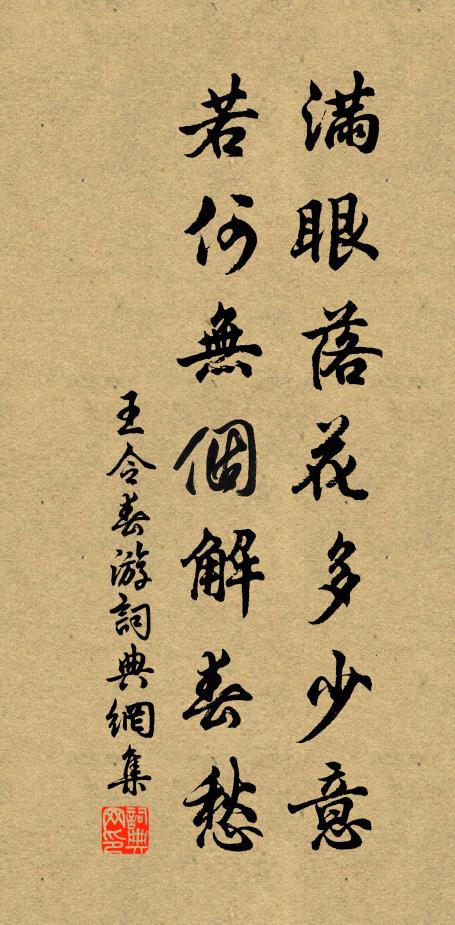 滿眼落花多少意
若何無個解春愁
王令春游詞典網集
詞典網印